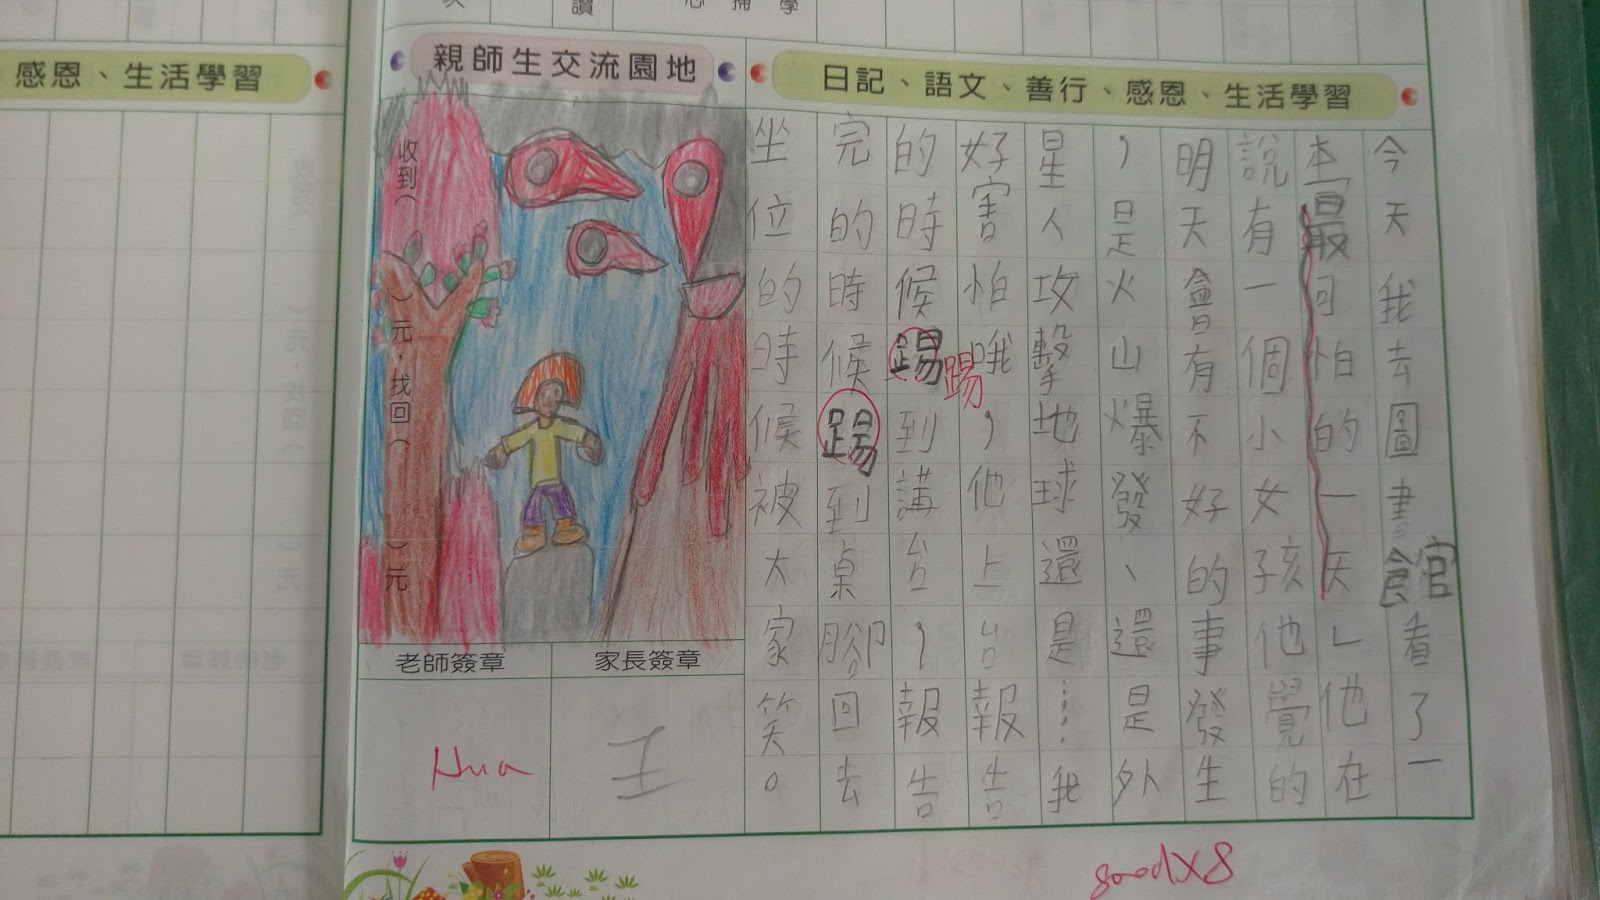 感恩、生活學習
親師生交流園地
日記、語文、善行、感恩、生活學習
今天我去圖書館看了一
本「最可怕的一天」他在
說有一個小女孩他覺的
明天會有不好的事發生
，是火山爆發、還是外
星人攻擊地球還是……我
好害怕哦，他上台報告
的時候踢到講台，報告
踢
完的時候踢到桌腳回去
坐位的時候被大家笑。
收到（　）元，找回（　）元
老師簽章
家長簽章
Hua
王
goodX8